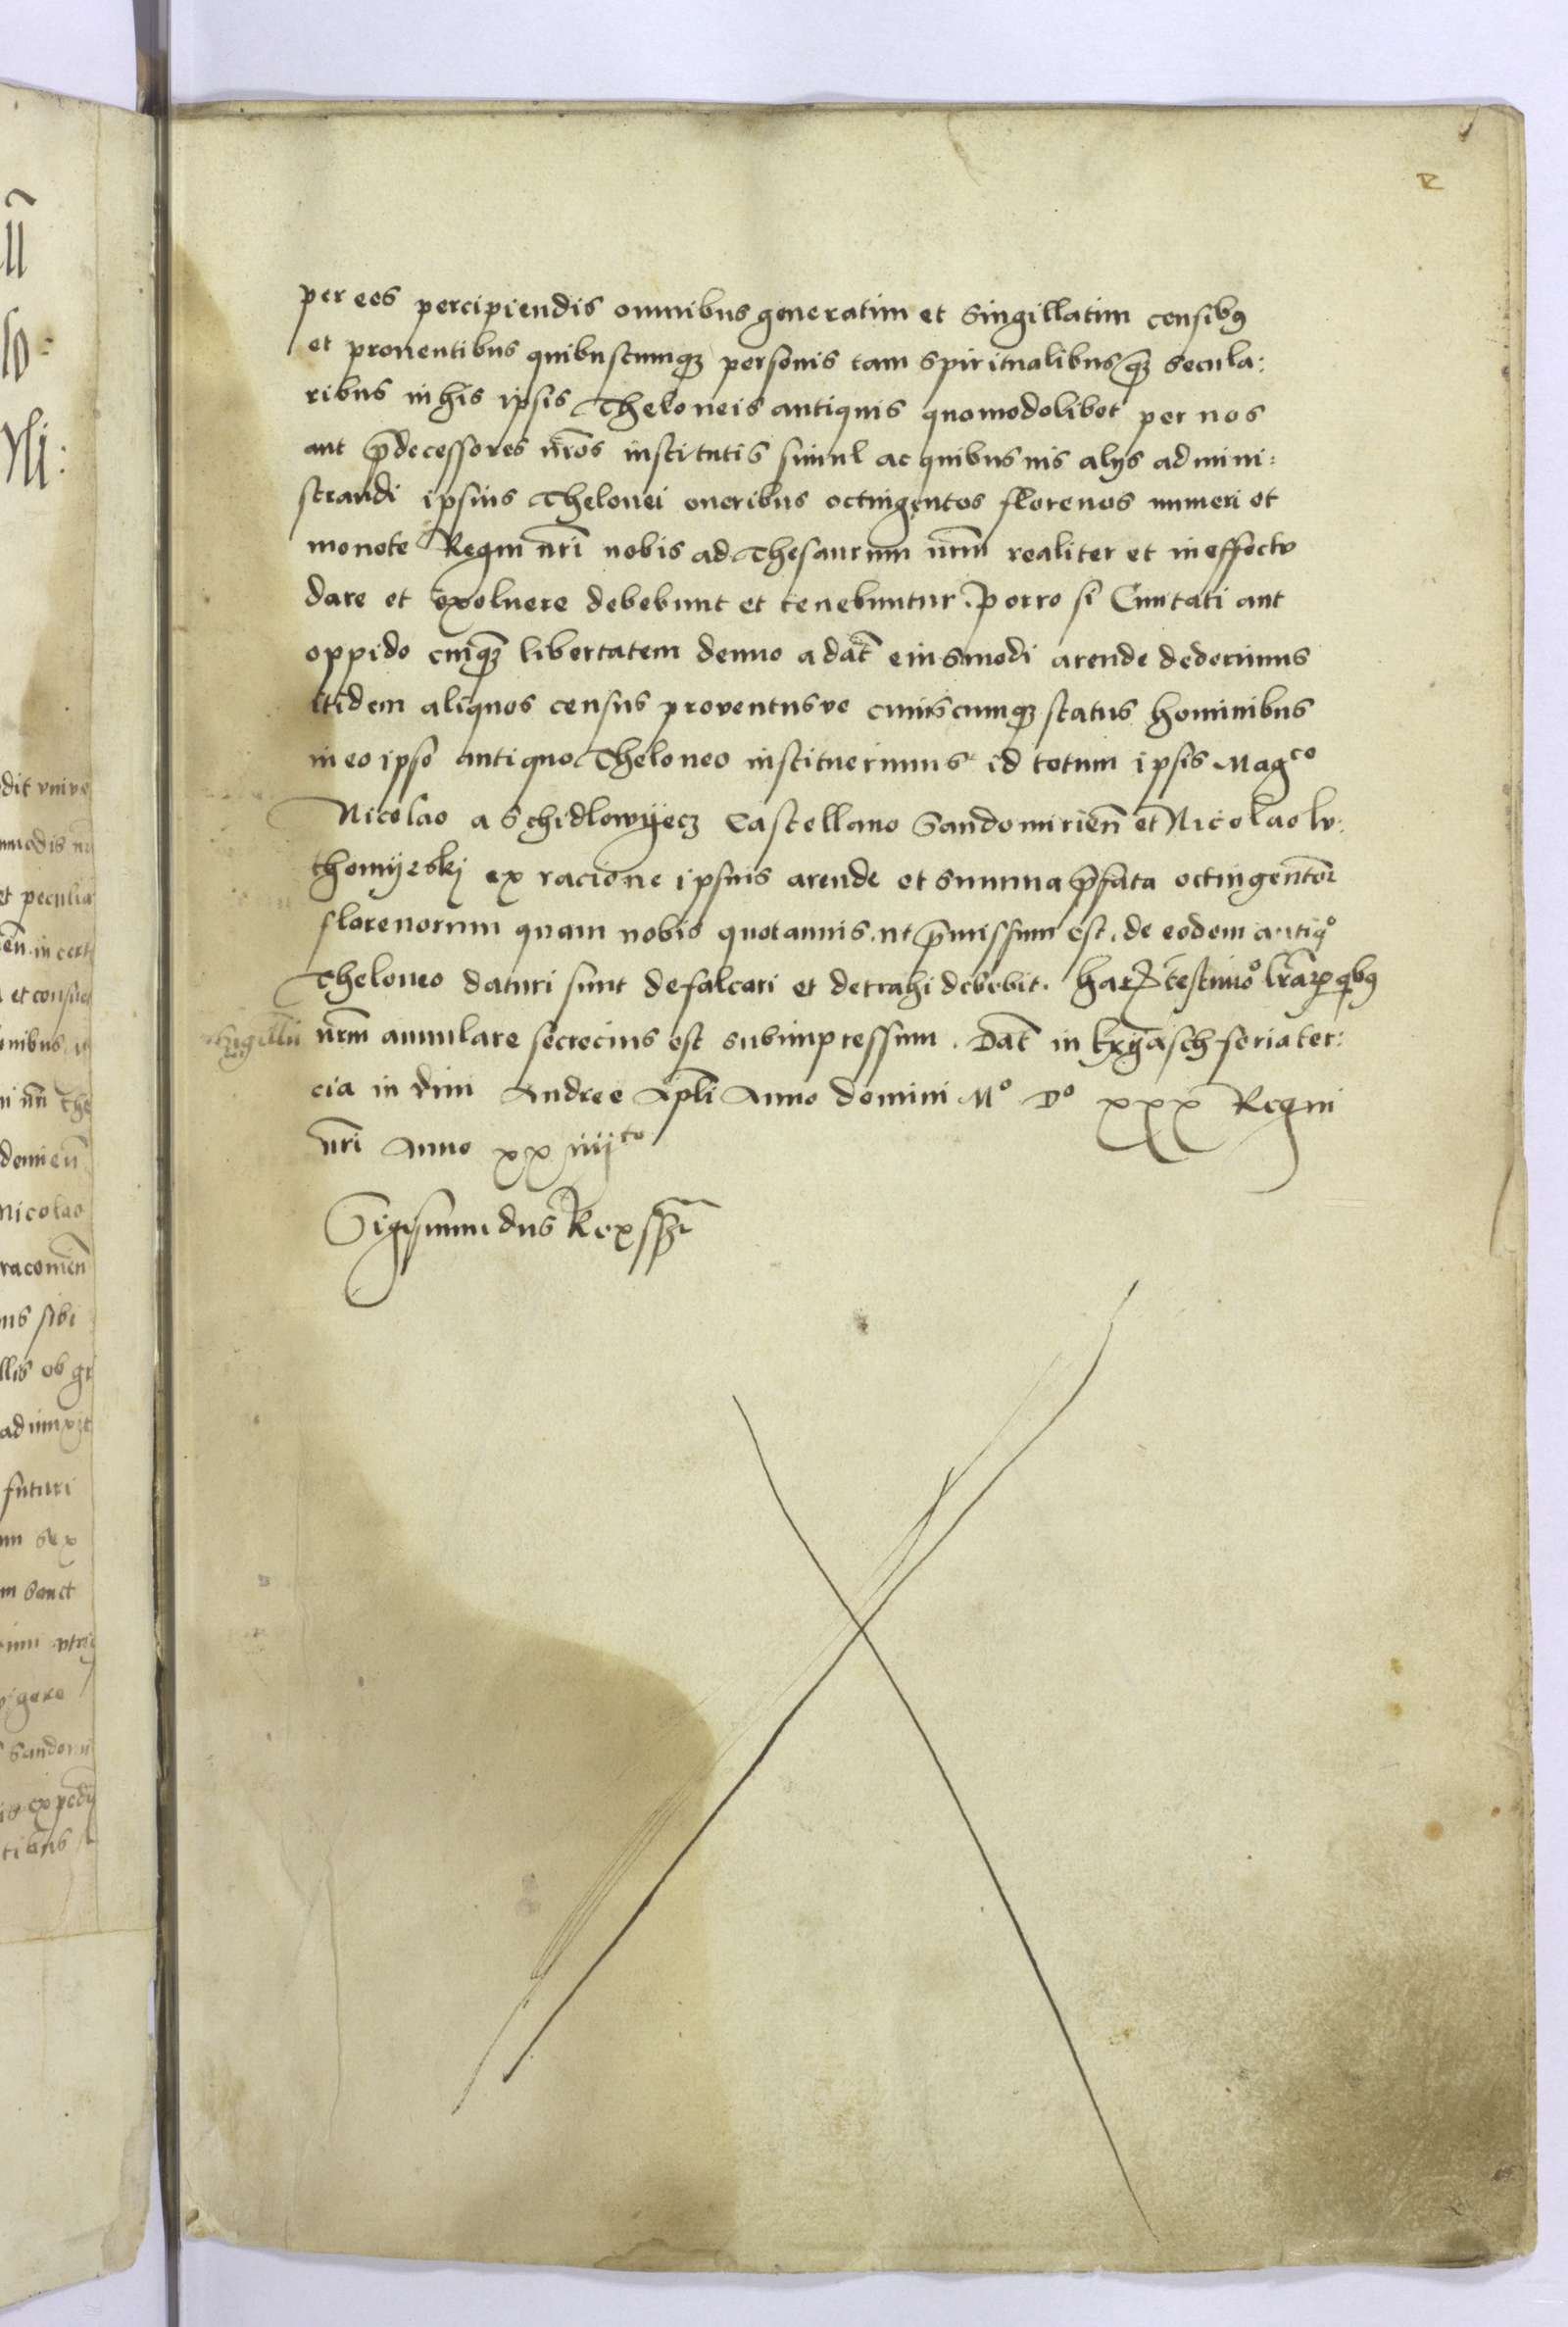 2
per eos percipiendis omnibus generatim et singillatim censibꝰ
et proventibus quibuscumqꝫ personis tam spiritualibus qꝫ secula:
ribus in his ipsis Theloneis antiquis quomodolibet per nos
aut p̄decessores nr̄os institutis simul ac quibusvis alijs admini:
strandi ipsius Thelonei oneribus octingentos florenos numeri et
monete Regni nr̄i nobis ad Thesaurum nr̄m realiter et in effectu
dare et exoluere debebunt et tenebuntur. Porro si Ciuitati aut
oppido cuiqꝫ libertatem denuo a dat̄ eiusmodi arende dederimus
itidem aliquos census proventusve cuiuscumqꝫ status hominibus
in eo ipso antiquo Theloneo instituerimus id totum ipsis Magco
Nicolao a Schidlowyecz Castellano Sandomirien̄ et Nicolao lu:
thomyrskj ex racione ipsius arende et summa p̄fata octingentor̄
florenorum quam nobis quotannis, ut p̄missum est, de eodem antiqo
Theloneo daturi sunt defalcari et detrahi debebit. harꝝ testimoo lr̄arꝝ qbꝰ
sigillū nr̄m annulare secrecius est subimpressum. Dat̄ in feria ter:
cia in divi Andree Apl̄i Anno domini Mo Do xxx Regni
nr̄i Anno xx iiijto
Sigismundus Rex sszt